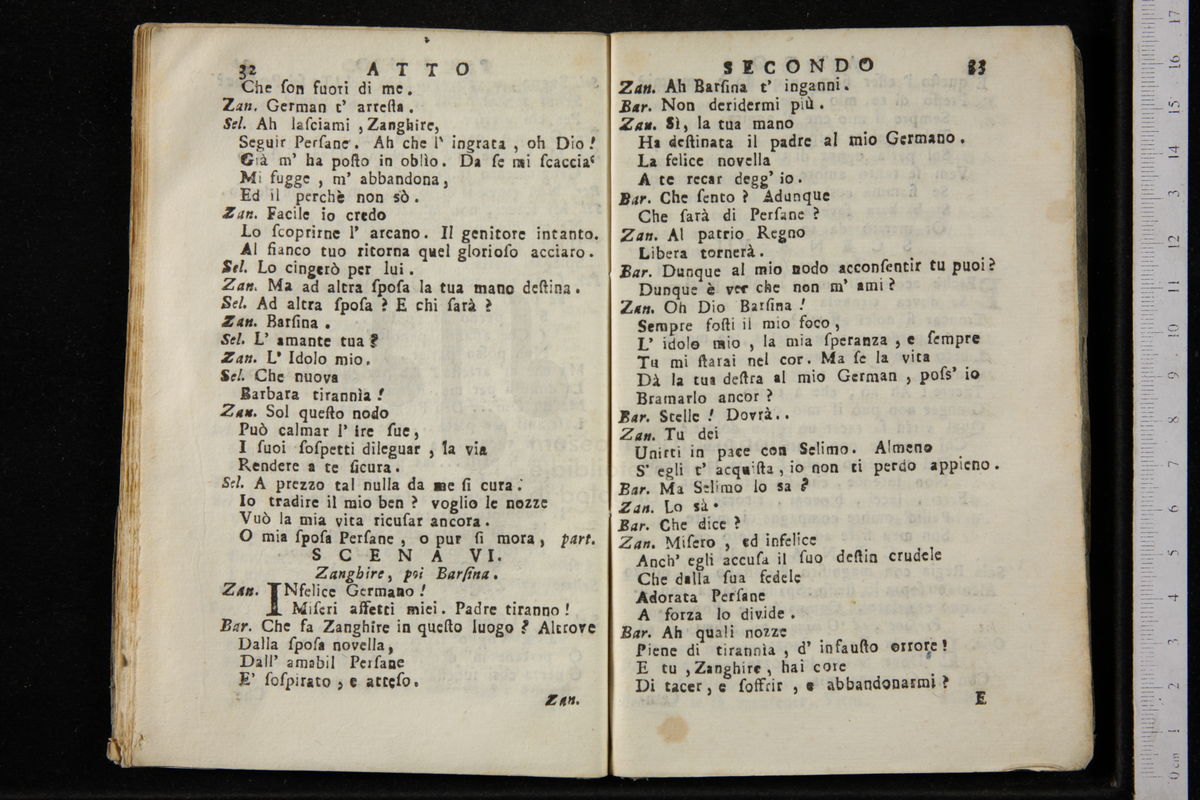 32 ATTO
Che ſon fuori di me.
Zan. German t' arreſta.
Sel. Ah laſciami, Zanghire,
Seguir Perſane. Ah che l' ingrata, oh Dio!
Già m' ha poſto in oblìo. Da ſe mi ſcaccia
Mi fugge, m' abbandona,
Ed il perchè non sò.
Zan. Facile io credo
Lo ſcoprirne l' arcano. Il genitore intanto.
Al fianco tuo ritorna quel glorioſo acciaro.
Sel. Lo cingerò per lui.
Zan. Ma ad altra ſpoſa la tua mano deſtina.
Sel. Ad altra ſpoſa? E chi ſarà?
Zan. Barſina.
Sel. L' amante tua?
Zan. L' Idolo mio.
Sel. Che nuova
Barbara tirannìa!
Zan. Sol queſto nodo
Può calmar l' ire ſue,
I ſuoi ſoſpetti dileguar, la via
Rendere a te ſicura.
Sel. A prezzo tal nulla da me ſi cura.
Io tradire il mio ben? voglio le nozze
Vuò la mia vita ricuſar ancora.
O mia ſpoſa Perſane, o pur ſi mora, part.
SCENA VI.
Zanghire, poi Barſina.
Zan. INfelice Germano!
Miſeri affetti miei. Padre tiranno!
Bar. Che fa Zanghire in queſto luogo? Altrove
Dalla ſpoſa novella,
Dall' amabil Perſane
E' ſoſpirato, e atteſo.
Zan.
SECONDO 33
Zan. Ah Barſina t' inganni.
Bar. Non deridermi più.
Zan. Sì, la tua mano
Ha deſtinata il padre al mio Germano.
La felice novella
A te recar degg' io.
Bar. Che ſento? Adunque
Che ſarà di Perſane?
Zan. Al patrio Regno
Libera tornerà.
Bar. Dunque al mio nodo acconſentir tu puoi?
Dunque è ver che non m' ami?
Zan. Oh Dio Barſina!
Sempre foſti il mio foco,
L' idolo mio, la mia ſperanza, e ſempre
Tu mi ſtarai nel cor. Ma ſe la vita
Dà la tua deſtra al mio German, poſs' io
Bramarlo ancor?
Bar. Stelle! Dovrà..
Zan. Tu dei
Unirti in pace con Selimo. Almeno
S' egli t' acquiſta, io non ti perdo appieno.
Bar. Ma Selimo lo sa?
Zan. Lo sà.
Bar. Che dice?
Zan. Miſero, ed infelice
Anch' egli accuſa il ſuo deſtin crudele
Che dalla ſua fedele
Adorata Perſane
A forza lo divide.
Bar. Ah quali nozze
Piene di tirannìa, d' infauſto orrore!
E tu, Zanghire, hai core
Di tacer, e ſoffrir, e abbandonarmi?
E